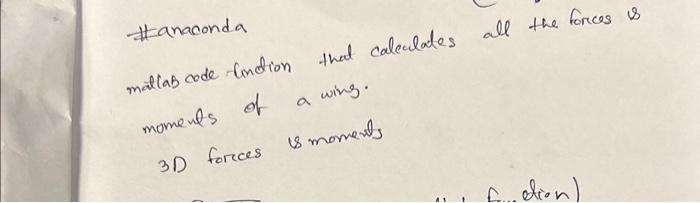 #anaconda
matlab code function that calculates all the forces &
moments of a wing.
3D forces & moments
function)